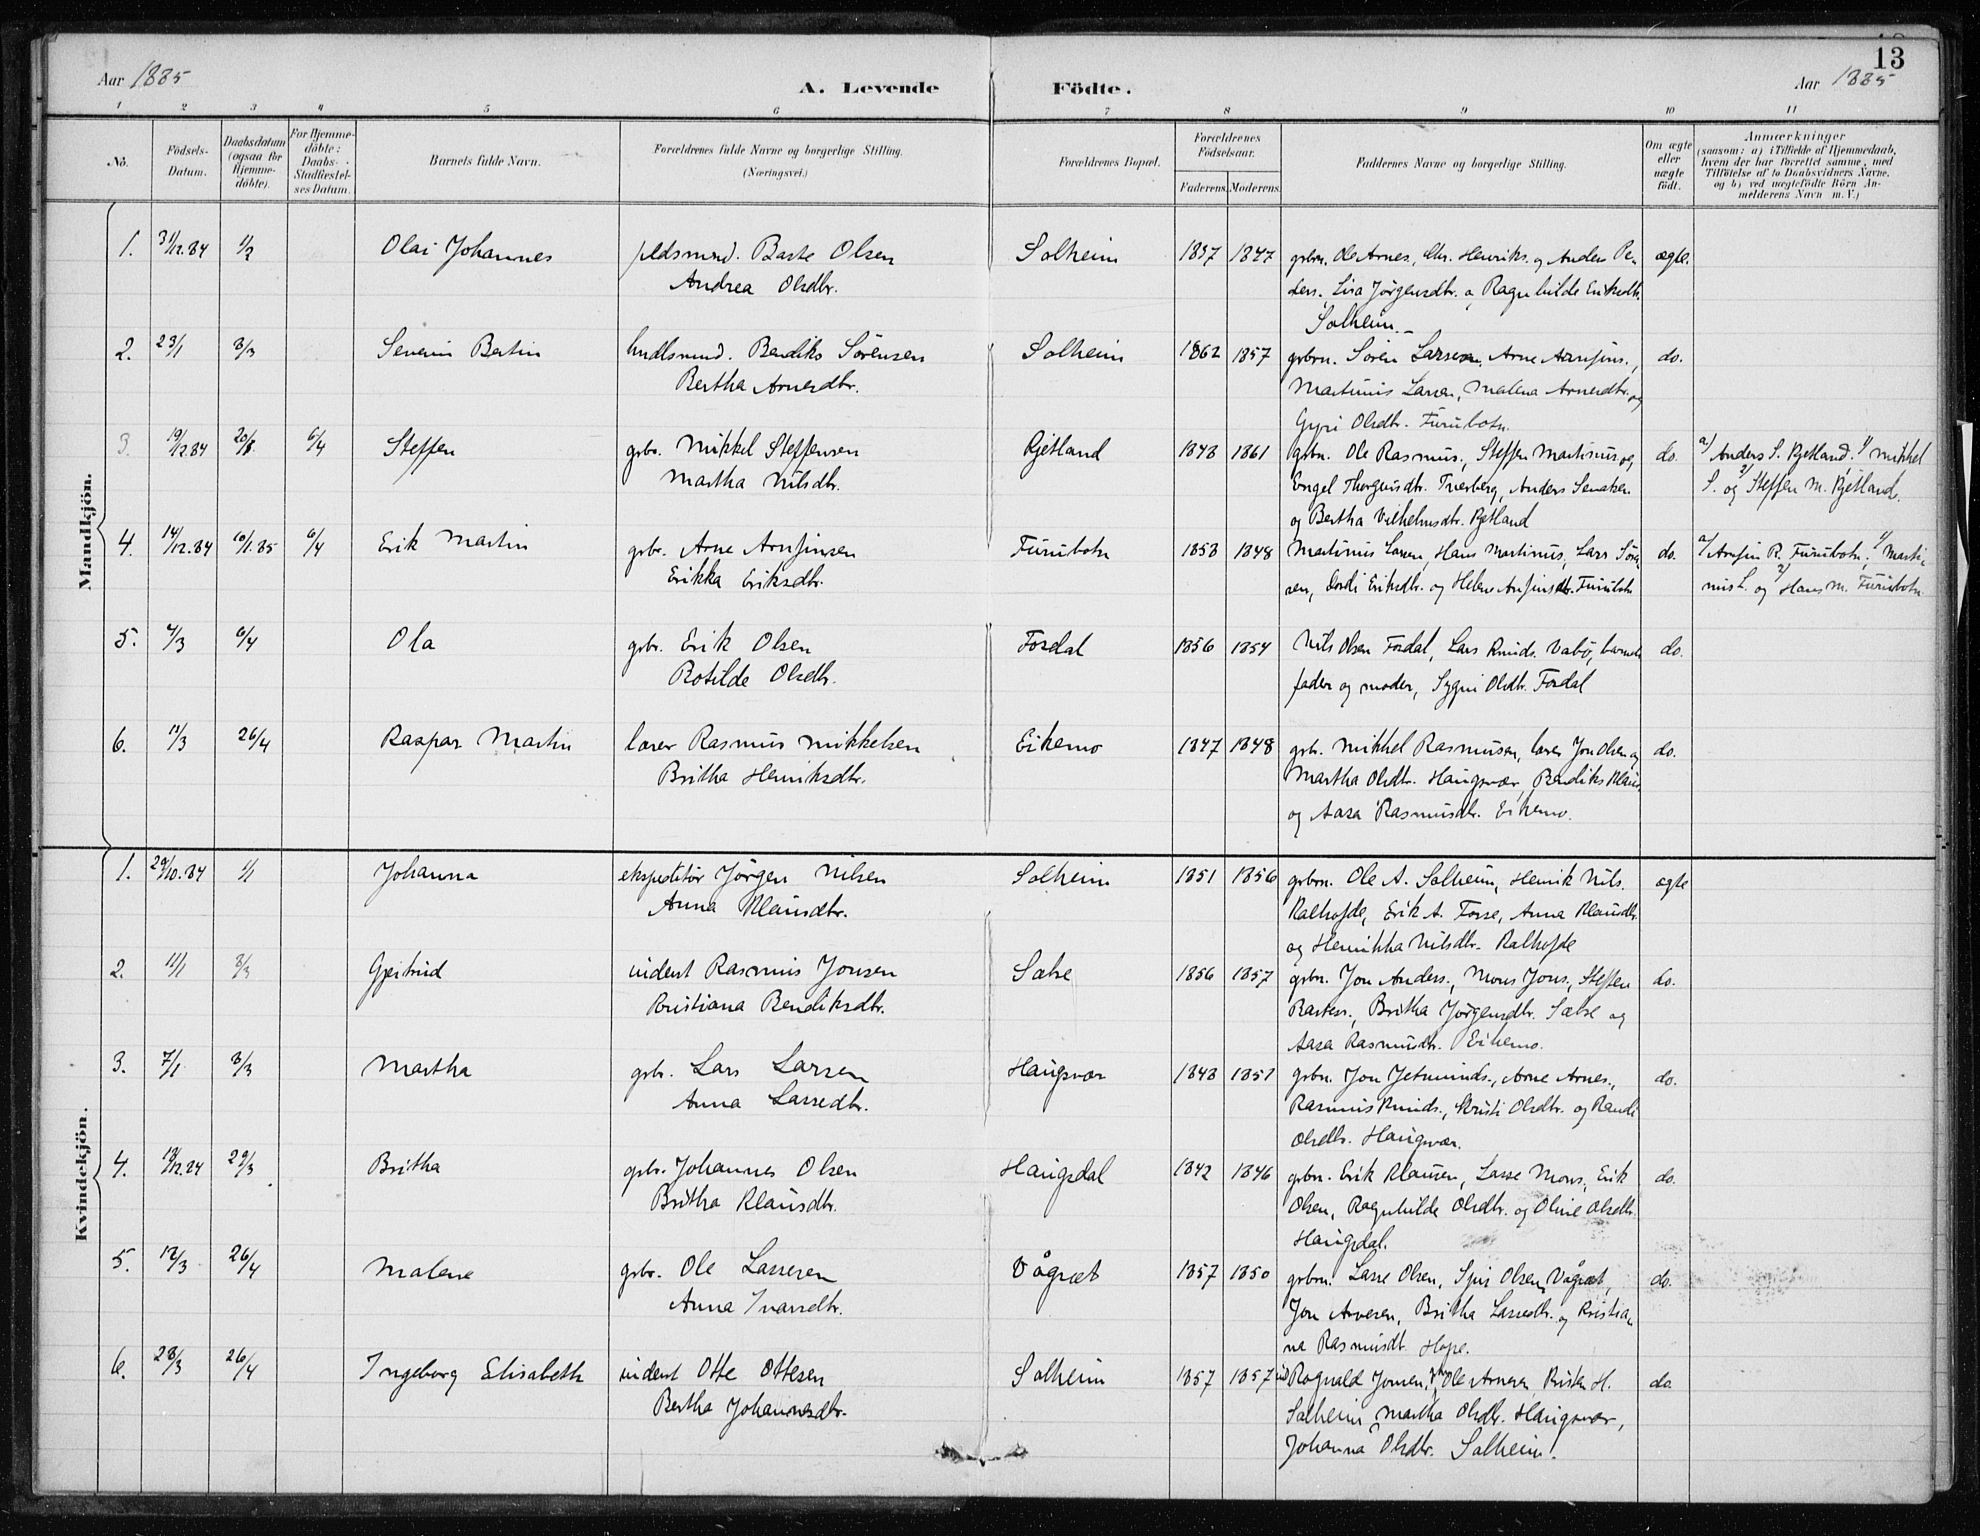 13
Aar 1885
A. Levende Födte.
Aar 1885
1 2 3 4 5 6 7 8 9 10 11
No. Födsels-Datum. Daabsdatum (ogsaa for Hjemme-döbte). For Hjemme-döbte: Daabs-Stadfæstel-ses Datum. Barnets fulde Navn. Forældrenes fulde Navne og borgerlige Stilling. (Næringsvei.) Forældrenes Bopæl. Forældrenes Födselsaar. Faderens. Moderens. Faddernes Navne og borgerlige Stilling. Om ægte eller uægte födt. Anmærkninger (saasom: a) i Tilfælde af Hjemmedaab, hvem der har forrettet samme, med Tilföielse af to Daabsvidners Navne, og b) ved uægtefödte Börn An-melderens Navn m. V.)
Mandkjön.
1. 31/12.84 1/2 Olai Johannes Baste Olsen Solheim 1857 1847 grbrn. Ole Arnes., Chr. Henriks. og Anders Pe- ægte.
Andrea Olsdtr. ders., Lisa Jørgensdtr. o. Ragnhilde Eriksdtr.
Solheim.-
2. 23/1 8/3 Severin Bertin Bendiks Sörensen Solheim 1862 1857 grbrn. Sören Larsen, Arne Arnfins., do.
Bertha Arnesdtr. Martinus Larsen, Malena Arnesdtr. og
Gyri Olsdtr. Furubotn.
3. 19/12.84 6/4 Steffen grbr. Mikkel Steffensen Kjetland 1848 1861 grbrn. Ole Rasmus., Steffen Martinus og do. a/ Anders S. Kjetland. 1/ Mikkel
Martha Nilsdtr. Engel Tverberg, Anders S. og 2/ Steffen M. Kjetland.
og Bertha Vilhelmsdtr. Kjetland
4. 14/12.84 10/1.85 6/4 Erik Martin grbr. Arne Arnfinsen Furubotn 1853 1848 Martinus Larsen, Hans Martinus, Lars Søren- do. a/ Arnfin R. Furubotn. 1/ Marti-
Erikka Eriksdtr. sen, Eriksdtr. og Helene Arnfinsdtr. Furubotn nus L. og 2/ Hans M. Furubotn.
5. 4/3 6/4 Ola grbr. Erik Olsen Fosdal 1856 1854 Nils Olsen Fosdal, Lars Knuds. Vabö, barnets do.
Botilde Olsdtr. fader og moder, Sygni Olsdtr. Fosdal
6. 11/3 26/4 Kaspar Martin lærer Rasmus Mikkelsen Eikemo 1847 1848 grbr. Mikkel Rasmusen, lærer Jon Olsen og do.
Britha Henriksdtr. Martha Olsdtr. Haugsvær, Bendiks Klaus.
og Aasa Rasmusdtr. Eikemo.
Kvindekjön.
1. 29/10.84 1/1 Johanna ekspeditör Jørgen Nilsen Solheim 1851 1856 grbrn. Ole A. Solheim, Henrik Nils. ægte
Anna Klausdtr. Erik A. Fosse, Anna Klausdtr.
og Henrikka Nilsdtr.
2. 11/1 8/3 Gjertrud inderst Rasmus Jonsen Sætre 1856 1857 grbrn. Jon Anders., Mons Jons., Steffen do.
Kristiana Bendiksdtr. Britha Jørgensdtr. Sætre og
Aasa Rasmusdtr. Eikemo.
3. 7/1 8/3 Martha grbr. Lars Larsen Haugsvær 1848 1851 grbrn. Jon Jetmunds., Arne Arnes., do.
Anna Larsedtr. Rasmus Knuds., Kristi Olsdtr. og Randi
Olsdtr. Haugsvær.
4. 29/3 Britha grbr. Johannes Olsen Haugsdal 1842 1846 grbrn. Erik Klausen, Lasse Mons., Erik do.
Britha Klausdtr. Olsen, Ragnhilde Olsdtr. og Oline Olsdtr.
Haugsdal.
5. 12/3 26/4 Malene grbr. Ole Lassesen Vågsæt 1857 1850 grbrn. Lasse Olsen, Olsen Vågsæt, do.
Anna Ivarsdtr. Jon Arnesen, Britha Lassedtr. og Kristia-
na Rasmusdt. Hope.
6. 28/3 26/4 Ingeborg Elisabeth inderst Otte Ottesen Solheim 1857 1857 Ragnald Jonsen, Ole Arnesen, H. do.
Bertha Johannesdtr. Solheim, Martha Olsdtr. Haugsvær,
Johanna Olsdtr. Solheim.